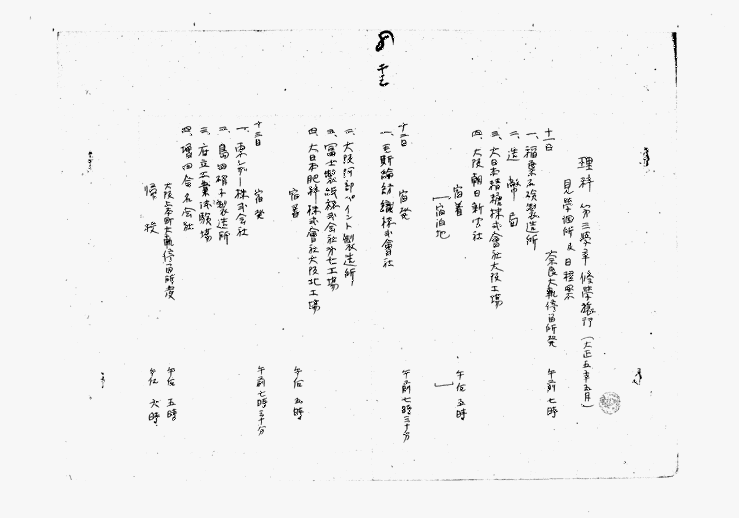 理科第三學年修學旅行（大正五年五月）
見學個所及日程案
十一日 奈良大軌停留所発 午前七時
一、福原石鹸製造所
二、造幣局
三、大日本精糖株式會社大阪工場
四、大阪朝日新聞社
宿着 午后五時
「宿泊地 」
十二日 宿発 午前七時三十分
一、毛斯綸紡織株式會社
二、大阪阿部ペイント製造所
三、冨士製紙株式会社第七工場
四、大日本肥料株式會社大阪北工場
宿着 午后五時
十三日 宿発 午前七時三十分
一、東レザー株式会社
二、島田硝子製造所
三、府立工業試験場
四、増田合名会社
大阪上本町大軌停留所発 午后五時
帰校 午后六時